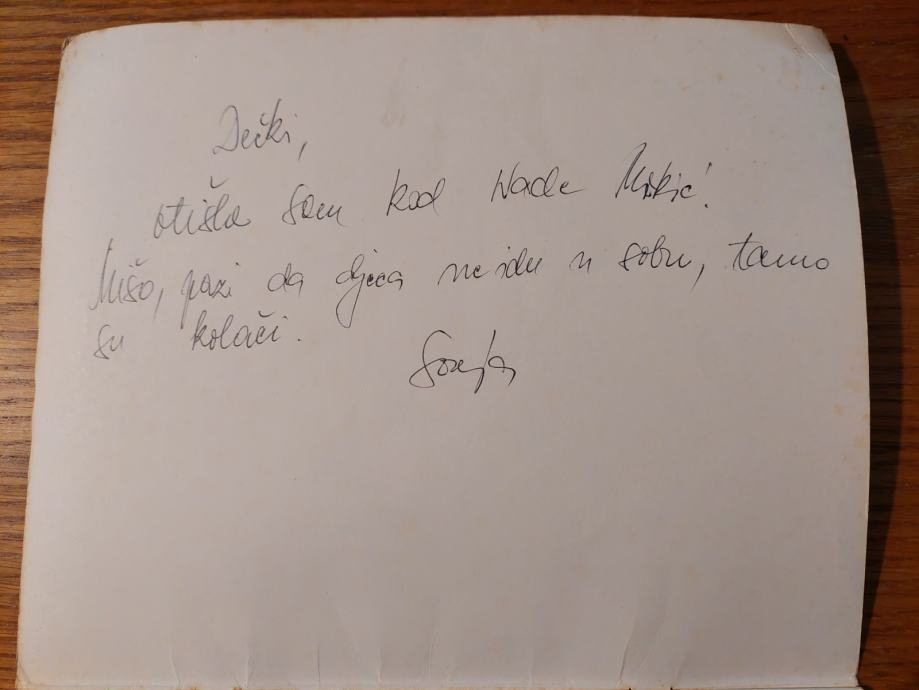 Dečki,
otišla sam kod Nade Mikić.
Mišo, pazi da djeca ne idu u sobu, tamo
su kolači.
Sonja